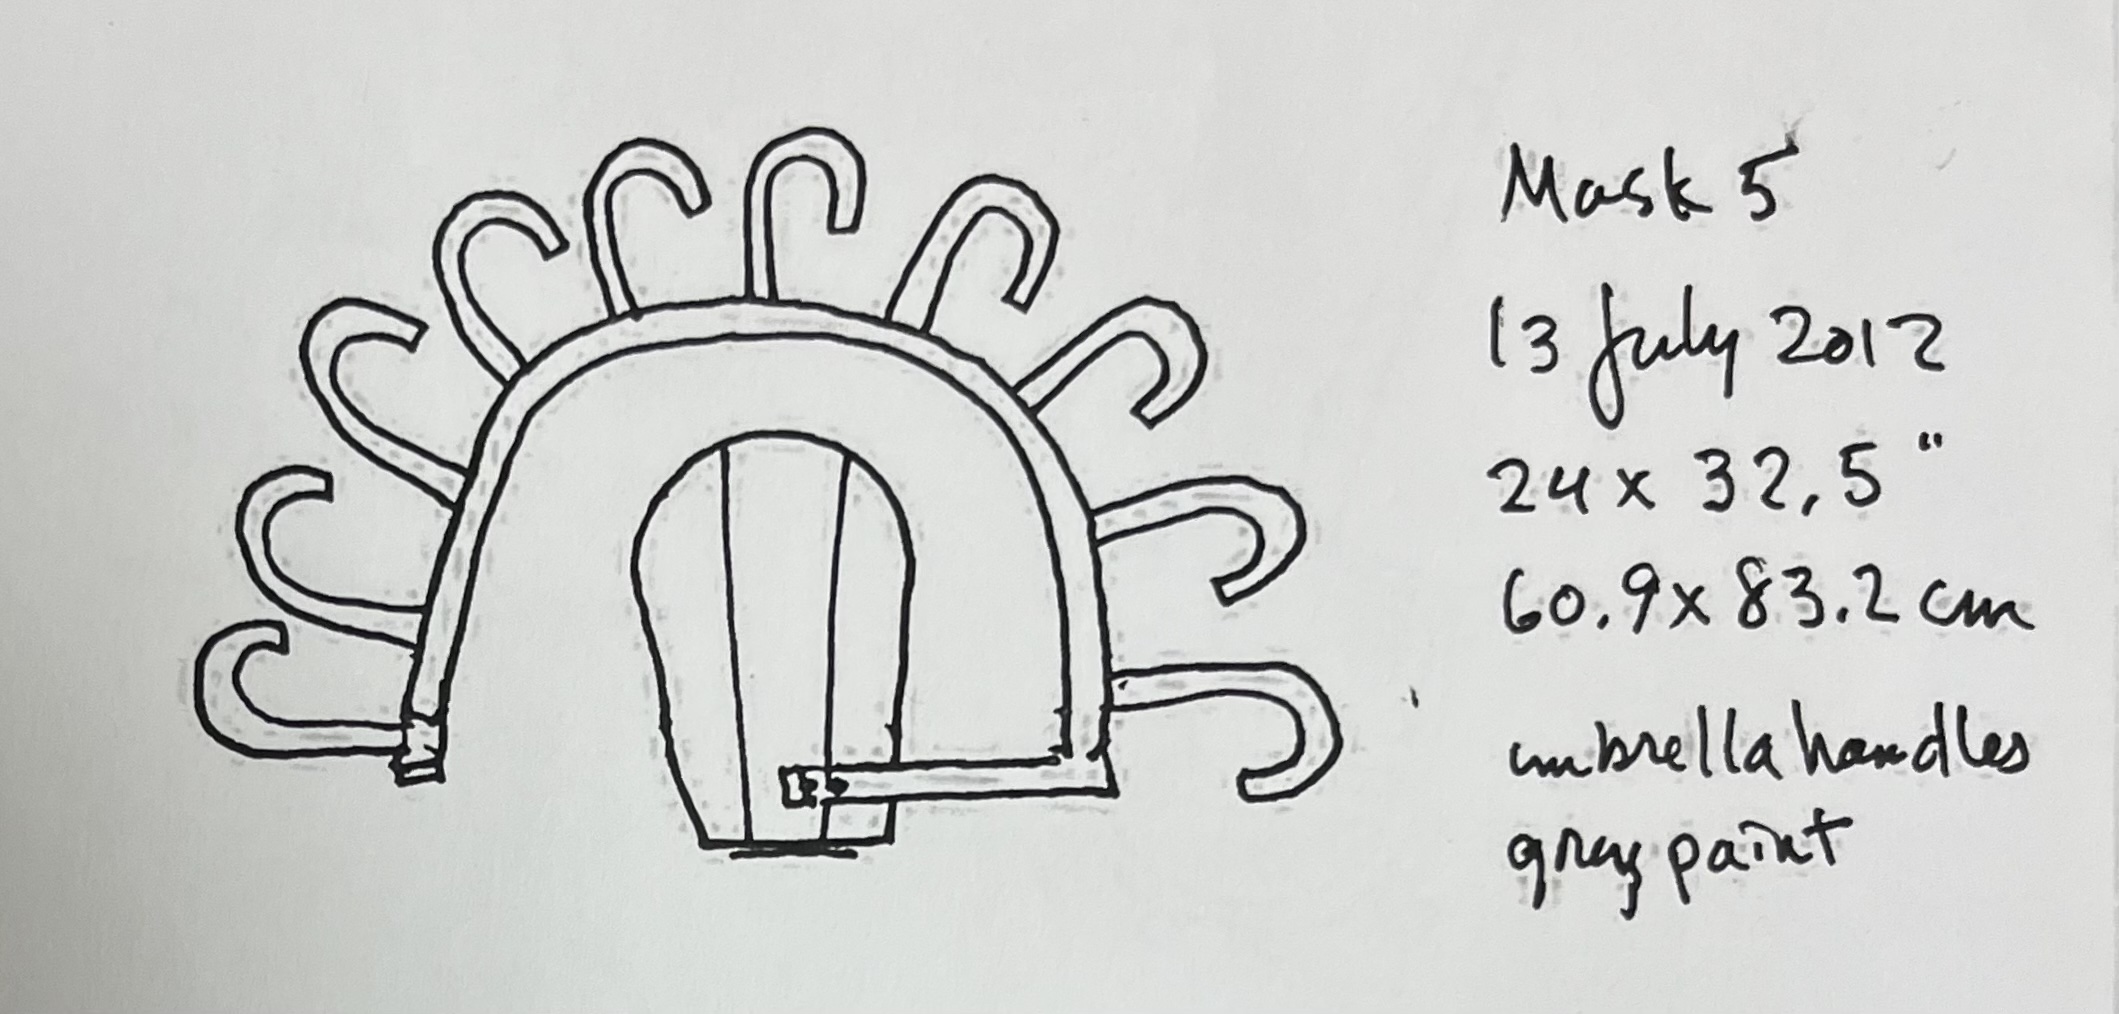 Mask 5
13 July 2012
24 x 32,5"
60.9 x 83.2 cm
umbrella handles
grey paint